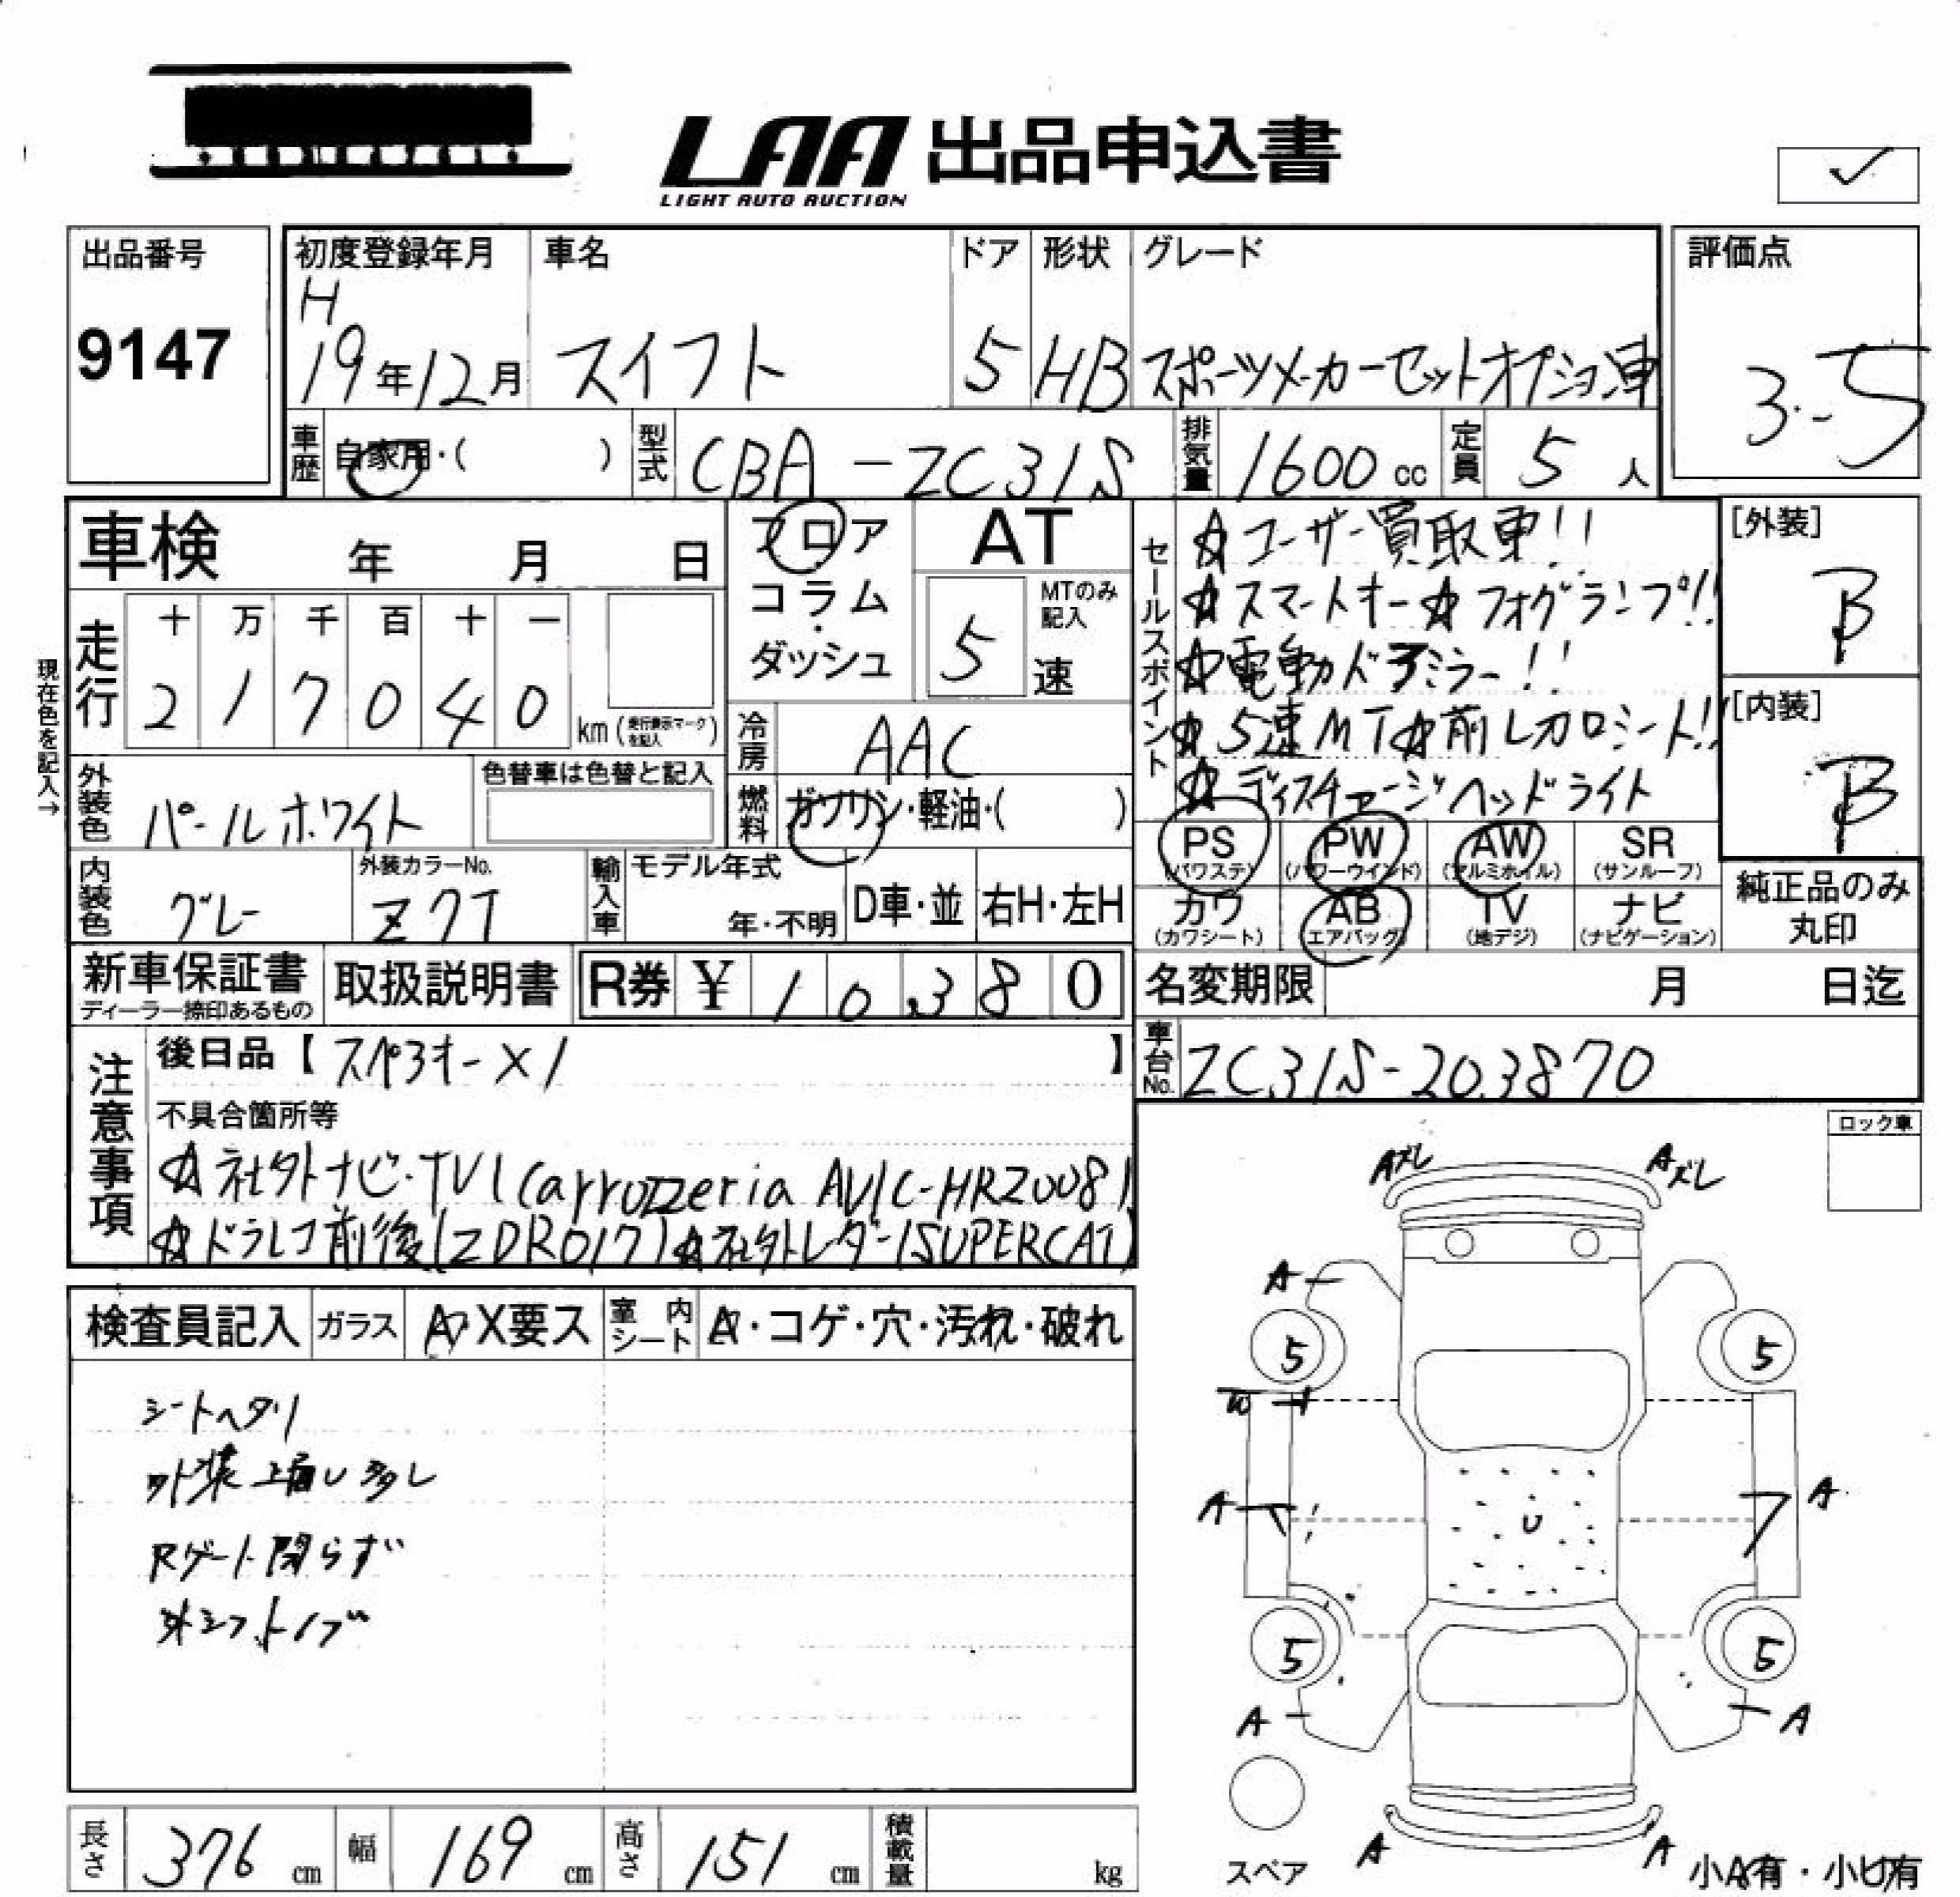 LAA 出品申込書
LIGHT AUTO AUCTION
出品番号
9147
初度登録年月
H
19年12月
車名
スイフト
ドア
5
形状
HB
グレード
スポーツメーカーセットオプション車
評価点
3.5
車歴 自家用・( )
型式 CBA-ZC31S
排気量 1600 cc
定員 5 人
車検 年 月 日
走行
十 万 千 百 十 一
2 1 7 0 4 0
km (走行表示マークを記入)
現在色を記入→
フロア
コラム
・
ダッシュ
AT
MTのみ記入
5 速
冷房 AAC
燃料 ガソリン・軽油・( )
外装色 パールホワイト
色替車は色替と記入
内装色 グレー
外装カラーNo.
Z7T
輸入車
モデル年式
年・不明
D車・並
右H・左H
セールスポイント
☆ユーザー買取車!!
☆スマートキー☆フォグランプ!!
☆電動ドアミラー!!
☆5速MT☆前レカロシート!!
☆ディスチャージヘッドライト
[外装]
B
[内装]
B
PS (パワステ)
PW (パワーウインド)
AW (アルミホイル)
SR (サンルーフ)
カワ (カワシート)
AB (エアバッグ)
TV (地デジ)
ナビ (ナビゲーション)
純正品のみ
丸印
新車保証書
ディーラー捺印あるもの
取扱説明書
R券 ¥ 10,380
名変期限 月 日迄
車台No. ZC31S-203870
注意事項
後日品【スペアキー×1 】
不具合箇所等
☆社外ナビ・TV(carrozzeria AVIC-HRZ008)
☆ドラレコ前後(ZDR017)☆社外レーダー(SUPERCAT)
ロック車
検査員記入
ガラス A・X要ス
室内シート A・コゲ・穴・汚れ・破れ
シートヘタリ
外装上補し多し
Rゲート閉らず
外シフトノブ
Aズレ
Aズレ
A
5
5
W
A
A
U
5
5
A
A
スペア
A
A
小A有・小U有
長さ 376 cm
幅 169 cm
高さ 151 cm
積載量 kg